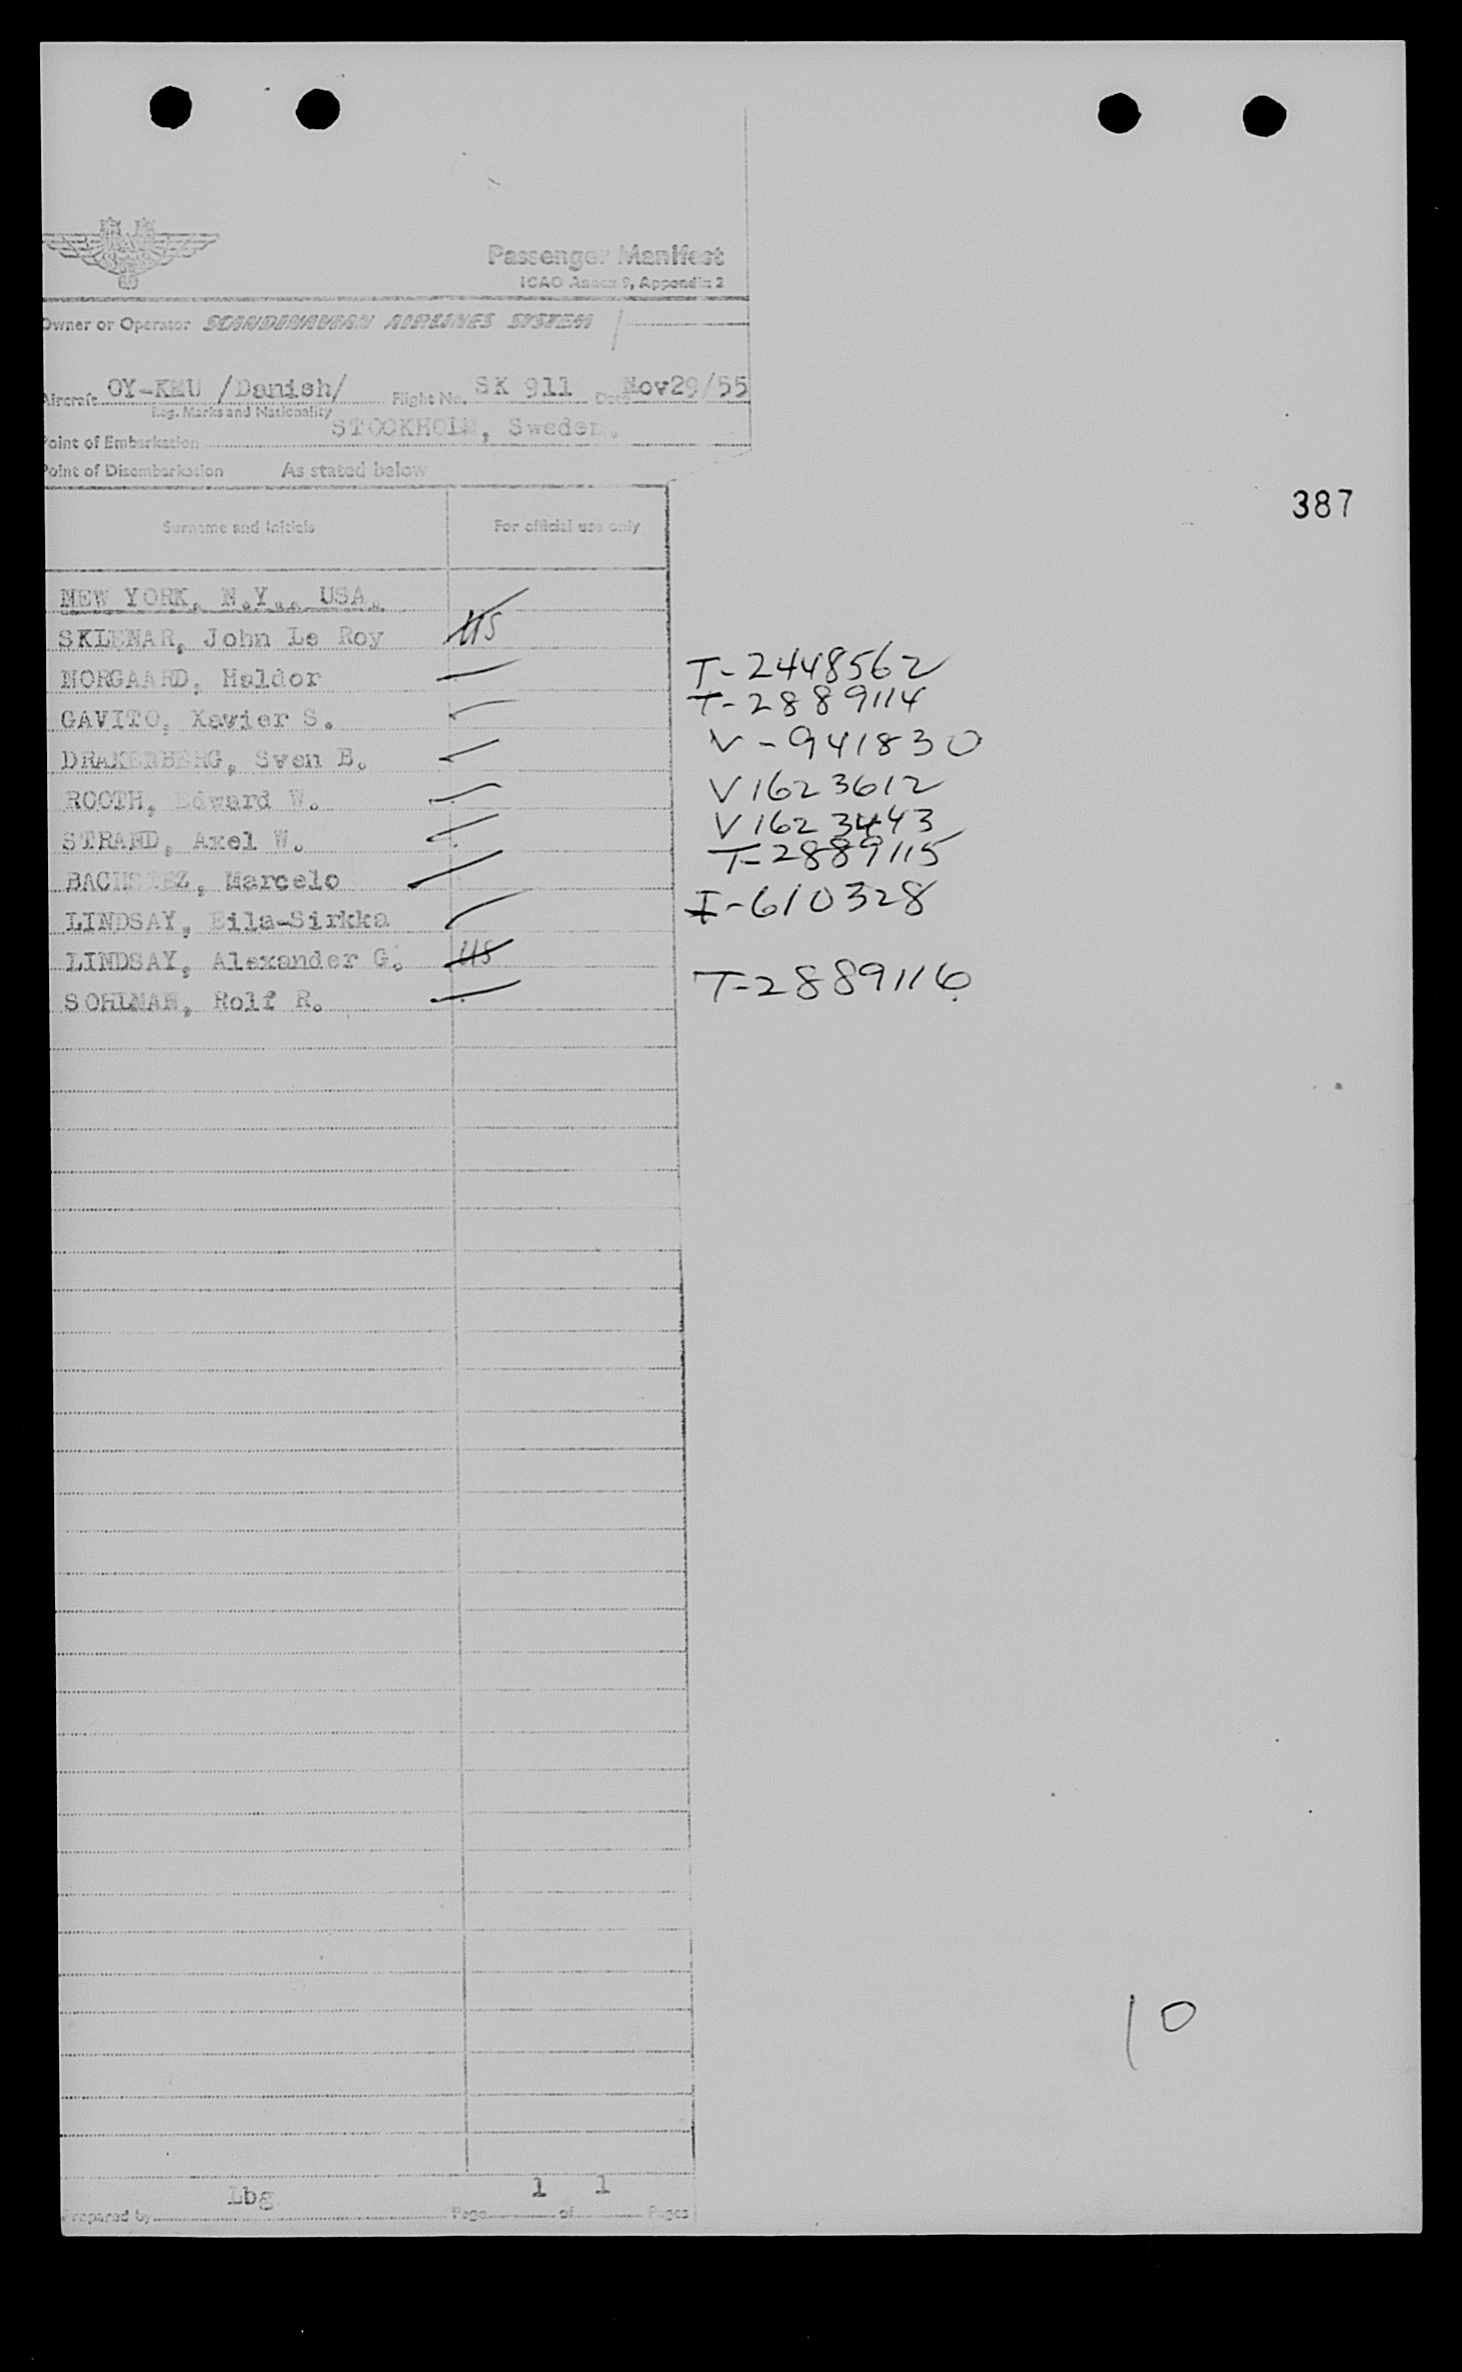 Passenger Manifest
ICAO Annex 9, Appendix 2
Owner or Operator SCANDINAVIAN AIRLINES SYSTEM
Aircraft OY-KMU /Danish/ Flight No. SK 911 Date Nov29/55
Reg. Marks and Nationality
Point of Embarkation STOCKHOLM, Sweden.
Point of Disembarkation As stated below
387
Surname and Initials For official use only
NEW YORK, N.Y., USA.
SKLENAR, John Le Roy US
NORGAARD, Haldor T-2448562
GAVITO, Xavier S. T-2889114
DRAKENBERG, Sven E. V-941830
ROOTH, Edward W. V1623612
STRAND, Axel W. V1623443
T-2889115
Marcelo
LINDSAY, Eila-Sirkka I-610328
LINDSAY, Alexander G. US
SOHLMAN, Rolf R. T-2889116
10
Lbg 1 1
Prepared by Page of Pages